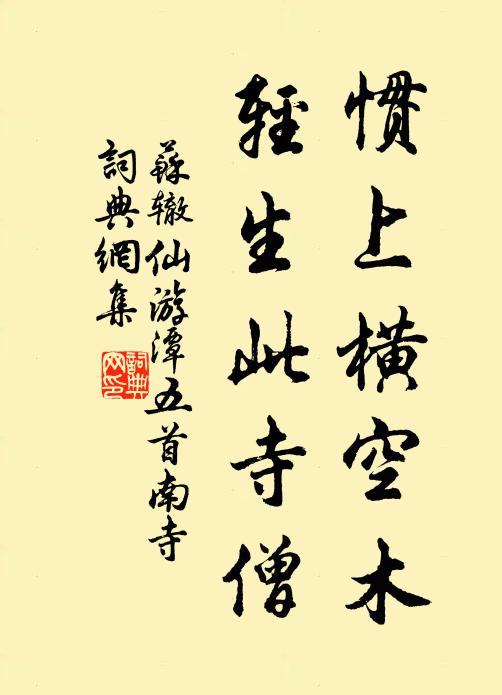 惯上横空木
輕生此寺僧
蘇辙仙游潭五首南寺
詞典網集
詞典网印